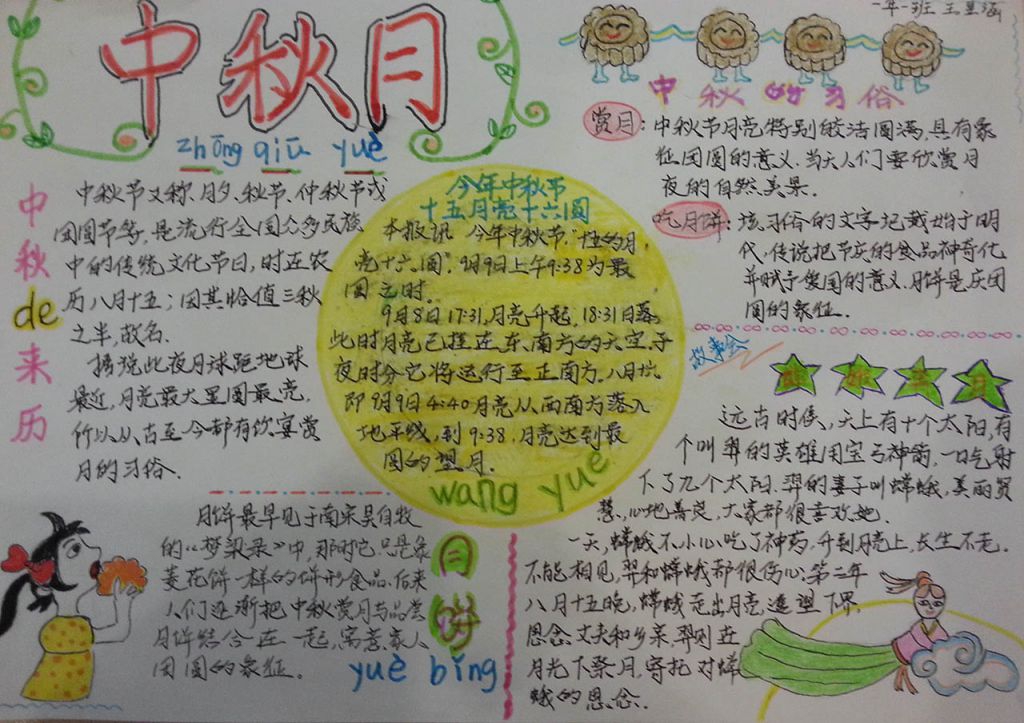 一年一班 王星涵
中秋月
zhōng qiū yuè
中秋de来历
中秋节又称月夕、秋节、仲秋节或
团圆节等,是流行全国众多民族
中的传统文化节日,时在农
历八月十五;因其恰值三秋
之半,故名。
据说此夜月球距地球
最近,月亮最大里圆最亮,
所以从古至今都有饮宴赏
月的习俗、
今年中秋节
十五月亮十六圆
本报讯 今年中秋节,"
亮十六圆"。9月9日上午9:38为最
圆之时。
9月8日17:31,月亮升起,18:31日落。
此时月亮已挂在东南方的天空子
夜时分它将运行至正南方。八月十六
即9月9日4:40月亮从西南方落入
地平线,到9:38,月亮达到最
圆的望月.
wang yue
中秋的习俗
赏月:中秋节月亮特别皎洁圆满,具有象
征团圆的意义.当天人们要欣赏月
夜的自然美景.
吃月饼:该习俗的文字记载始于明
代,传说把节庆的食品神奇化
并赋予团圆的意义.月饼是庆团
圆的象征.
故事会
嫦娥奔月
远古时侯,天上有十个太阳,有
个叫羿的英雄用宝弓神箭,一口气射
下了九个太阳.羿的妻子叫嫦娥,美丽贤
慧、心地善良,大家都很喜欢她.
一天,嫦娥不小心吃了神药,升到月亮上,长生不老.
不能相见,羿和嫦娥都很伤心.第二年
八月十五晚,嫦娥走出月亮遥望下界.
思念丈夫和乡亲.羿则在
月光下祭月,寄托对嫦
娥的思念.
月饼最早见于南宋吴自牧
的《梦梁录》中,那时它只是象
菱花饼一样的饼形食品.后来
人们逐渐把中秋赏月与品尝
月饼结合在一起,寓意家人
团圆的象征.
月饼
yuè bǐng